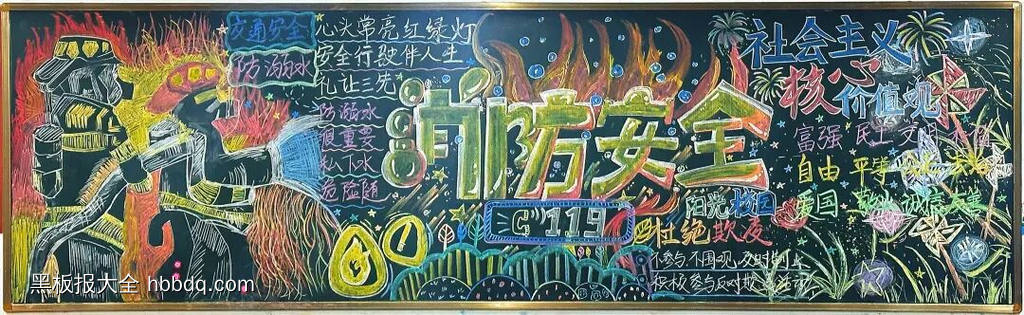 交通安全
心头常亮红绿灯
安全行驶伴人生
礼让三先
防溺水
防溺水
很重要
私下水
危险随
消防安全
119
社会主义
核心
价值观
富强 民主 文明
自由 平等
爱国
阳光校园
杜绝欺凌
不参与 不围观 及时制止
积极参与反对欺凌活动
黑板报大全 hbbdq.com